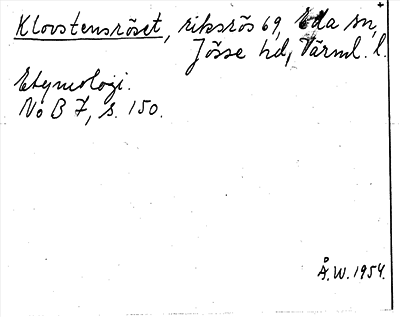 Klovstensröset, riksrös 69, Eda sn,
Jösse hd, Värml. l.
Etymologi.
No B 7, s. 150.
Å.W. 1954.